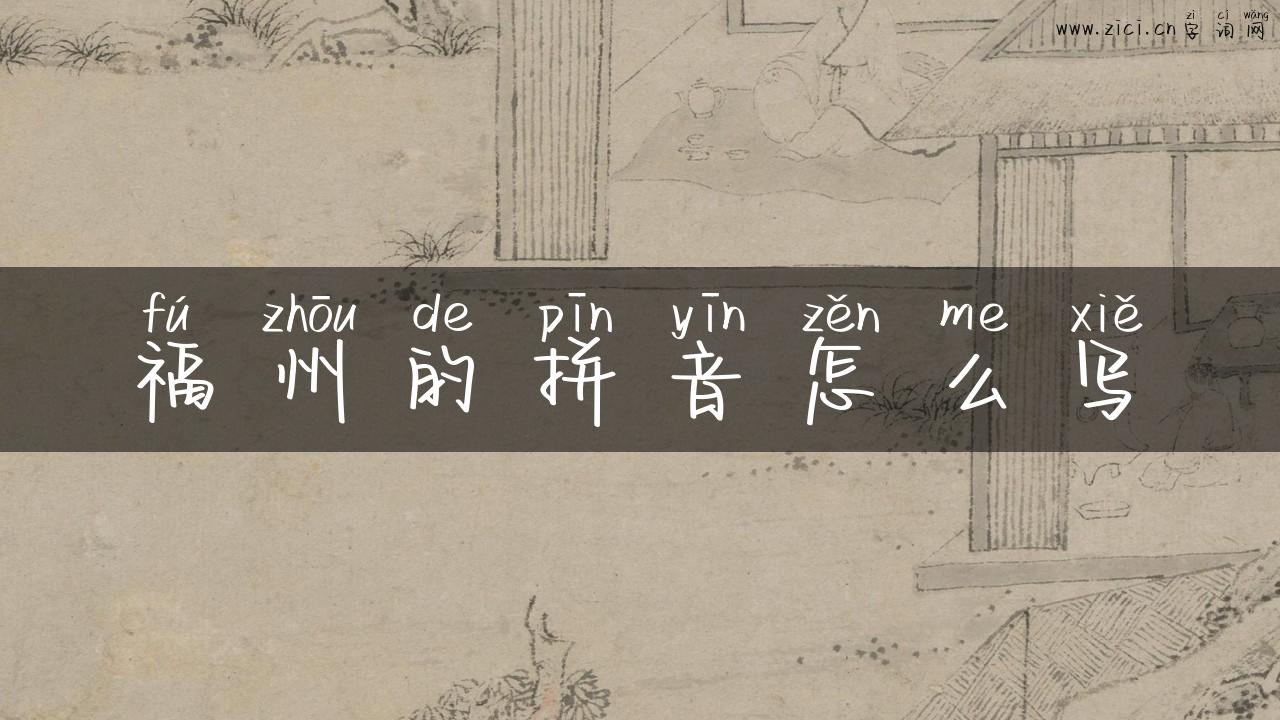 zì cí wǎng
www.zici.cn 字 词 网
fú zhōu de pīn yīn zěn me xiě
福 州 的 拼 音 怎 么 写